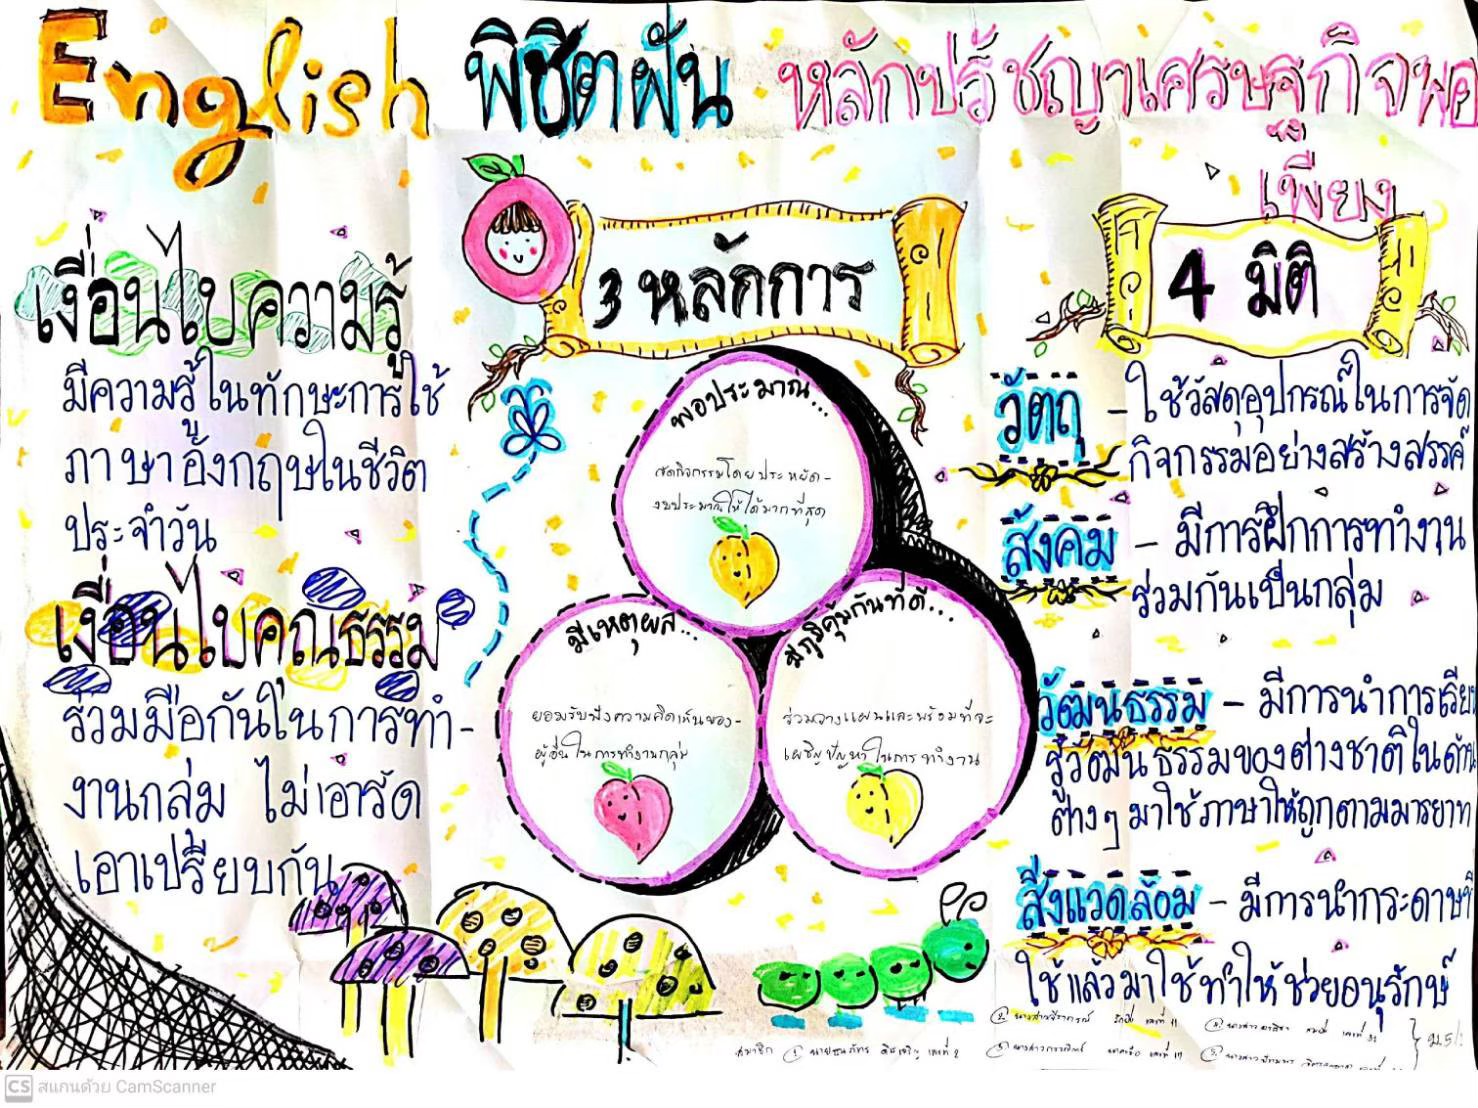 English พิชิตฝัน หลักปรัชญาเศรษฐกิจพอ
เพียง
เงื่อนไขความรู้
มีความรู้ในทักษะการใช้
ภาษาอังกฤษในชีวิต
ประจำวัน
เงื่อนไขคุณธรรม
ร่วมมือกันในการทำ-
งานกลุ่ม ไม่เอารัด
เอาเปรียบกัน
3 หลักการ
พอประมาณ...
จัดกิจกรรมโดยประหยัด-
งบประมาณให้ได้มากที่สุด
มีเหตุผล...
ยอมรับฟังความคิดเห็นของ-
ผู้อื่นในการทำงานกลุ่ม
มีภูมิคุ้มกันที่ดี...
ร่วมวางแผนและพร้อมที่จะ
เผชิญปัญหาในการทำงาน
4 มิติ
วัตถุ - ใช้วัสดุอุปกรณ์ในการจัด
กิจกรรมอย่างสร้างสรรค์
สังคม - มีการฝึกการทำงาน
ร่วมกันเป็นกลุ่ม
วัฒนธรรม - มีการนำการเรียน
รู้วัฒนธรรมของต่างชาติในด้าน
ต่างๆ มาใช้ภาษาให้ถูกตามมารยาท
สิ่งแวดล้อม - มีการนำกระดาษที่
ใช้แล้วมาใช้ทำให้ช่วยอนุรักษ์
สมาชิก
CS สแกนด้วย CamScanner